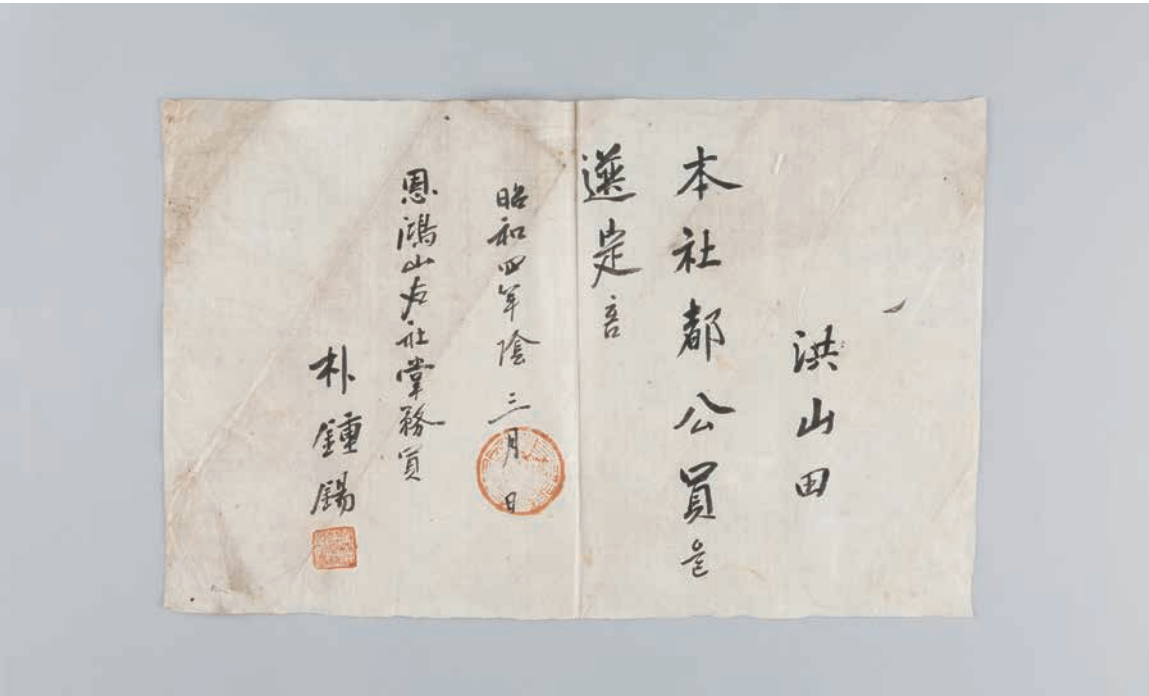 洪山田
本社都公員을
選定홈
昭和四年陰三月 日
恩鴻山左社掌務員
朴鍾錫